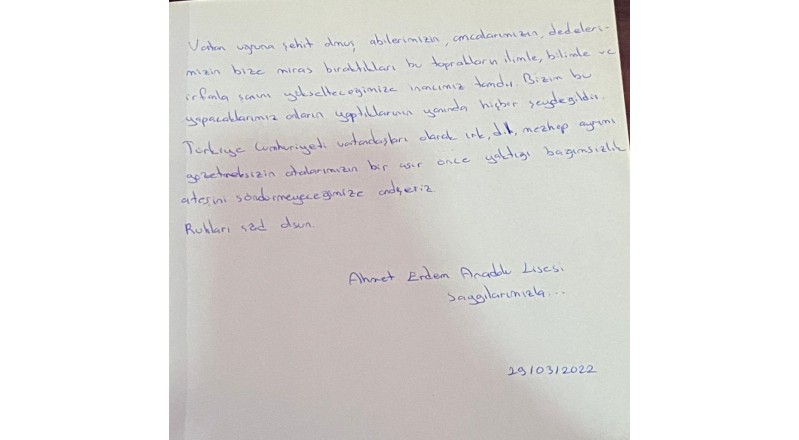 Vatan uğruna şehit olmuş abilerimizin, amcalarımızın, dedeleri-
mizin bize miras bıraktıkları bu toprakların ilimle, bilimle ve
irfanla sanını yükselteceğimize inancımız tamdır. Bizim bu
yapacaklarımız onların yaptıklarının yanında hiçbir şeydeğildir.
Türkiye Cumhuriyeti vatandaşları olarak ırk, dil, mezhep ayrımı
gözetmeksizin atalarımızın bir asır önce yaktığı bağımsızlık
ateşini söndürmeyeceğimize andiçeriz
Ruhları şad olsun.
Ahmet Erdem Anadolu Lisesi
Saygılarımızla...
29/03/2022